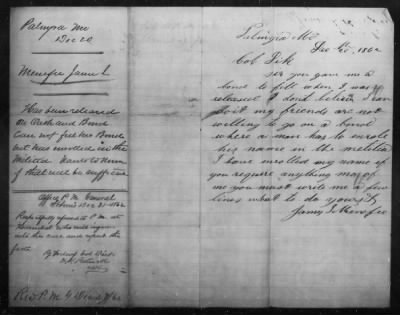 Palmyra Mo
Dec 20
Menefee James L
Has been released
on Oath and Bond
Can not fill his Bond
but was enrolled in the
Militia wants to know
if that will be sufficient
Office P. M. General
St Louis Dec 21 1862
Respectfully referred to P. M. at
Hannibal who will inquire
into this case and report the
facts
By order of
Rec'd P. M. G Dec 62
Palmyra Mo
Dec 20, 1862
Col Dick
Sir you gave me a
bond to fill when I was
released I dont believe I can
do it my friends are not
willing to go on a bond
where a man has to enrole
his name in the melitia
I have enrolled my name if
you require anything more of
me you must write me a few
lines what to do yours &
James L Menefee